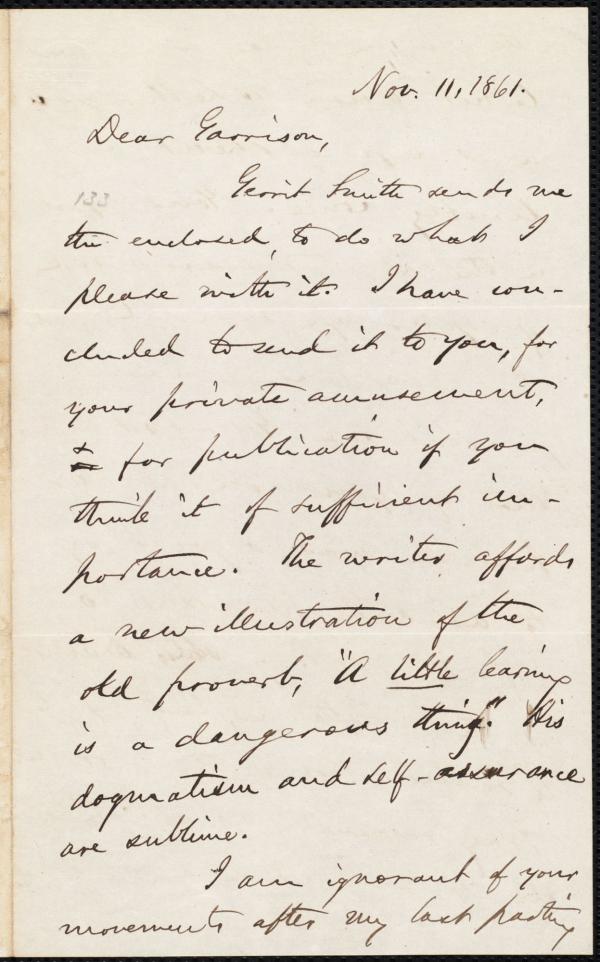 Nov. 11, 1861.
Dear Garrison,
133
Gerrit Smith sends me
the enclosed, to do what I
please with it. I have con-
cluded to send it to you, for
your private amusement,
& for publication if you
think it of sufficient im-
portance. The writer affords
a new illustration of the
old proverb, "A little learning
is a dangerous thing." His
dogmatism and self-assurance
are sublime.
I am ignorant of your
movements after my last parting